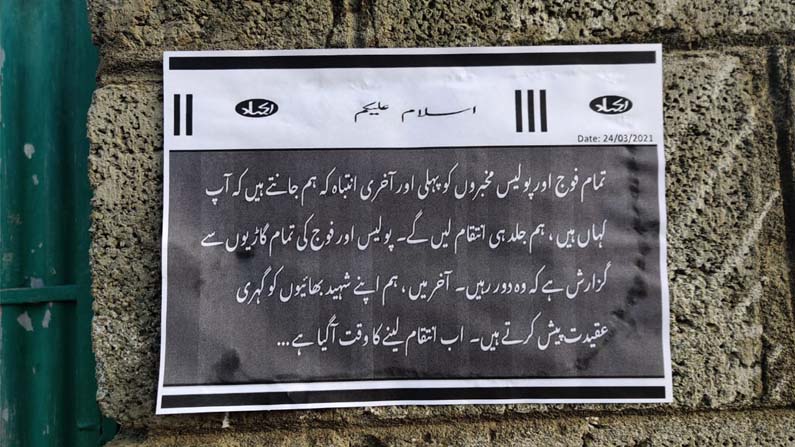 اسلام علیکم
Date: 24/03/2021
تمام فوج اور پولیس مخبروں کو پہلی اور آخری انتباہ کہ ہم جانتے ہیں کہ آپ
کہاں ہیں، ہم جلد ہی انتقام لیں گے۔ پولیس اور فوج کی تمام گاڑیوں سے
گزارش ہے کہ وہ دور رہیں۔ آخر میں، ہم اپنے شہید بھائیوں کو گہری
عقیدت پیش کرتے ہیں۔ اب انتقام لینے کا وقت آگیا ہے...